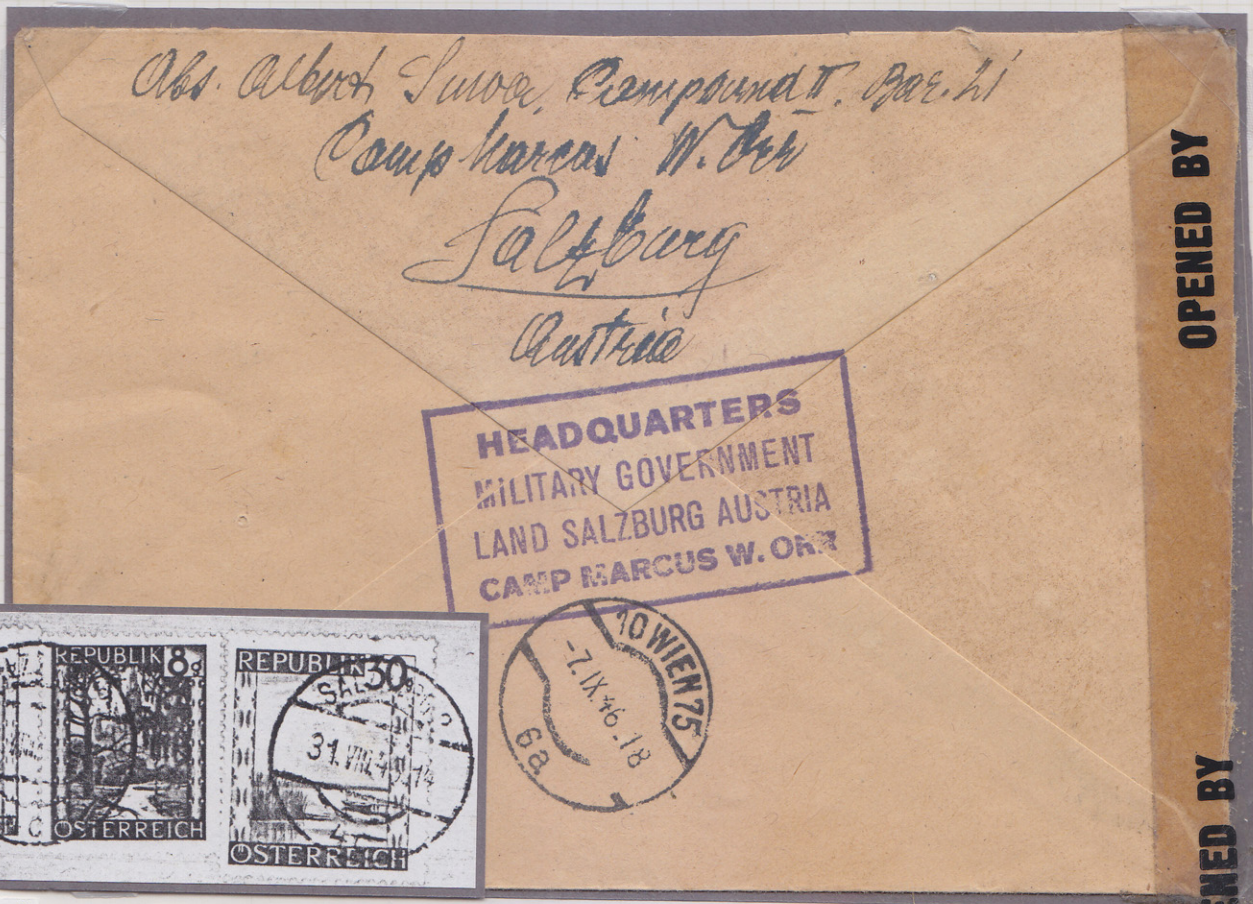 Abs. Albert Compound II. Bar. 21
Camp Marcus W. Orr
Salzburg
Austria
HEADQUARTERS
MILITARY GOVERNMENT
LAND SALZBURG AUSTRIA
CAMP MARCUS W. ORR
10 WIEN 75
-7.IX.46.18
6a
OPENED BY
OPENED BY
REPUBLIK 8g
ÖSTERREICH
REPUBLIK 30
31.VIII.
ÖSTERREICH